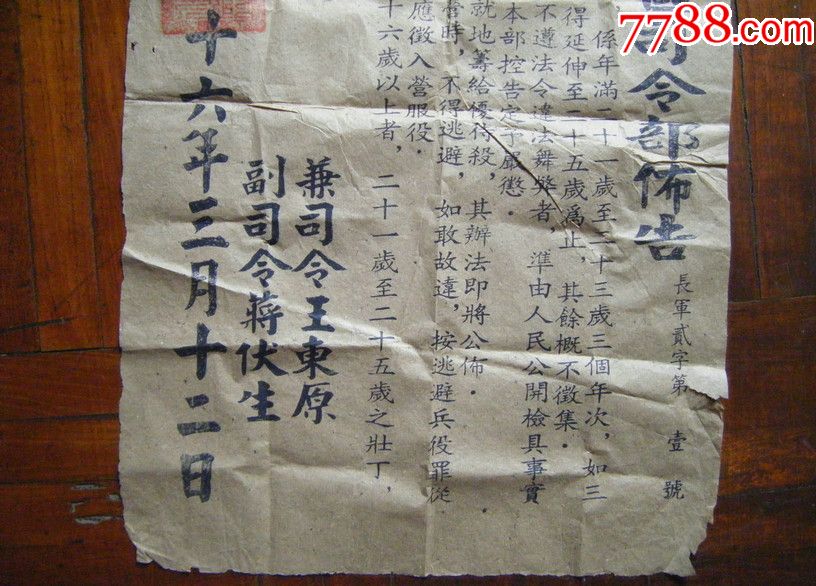 7788.com
司令部佈告
長軍貳字第　壹號
係年滿二十一歲至二十三歲三個年次，如三
得延伸至二十五歲爲止，其餘概不徵集．
不遵法令違法舞弊者，準由人民公開檢具事實
本部控告定予嚴懲．
就地籌給優待穀，其辦法即將公佈．
營時，不得逃避，如敢故違，按逃避兵役罪從
應徵入營服役．
十六歲以上者，二十一歲至二十五歲之壯丁，
兼司令王東原
副司令蔣伏生
十六年三月十二日